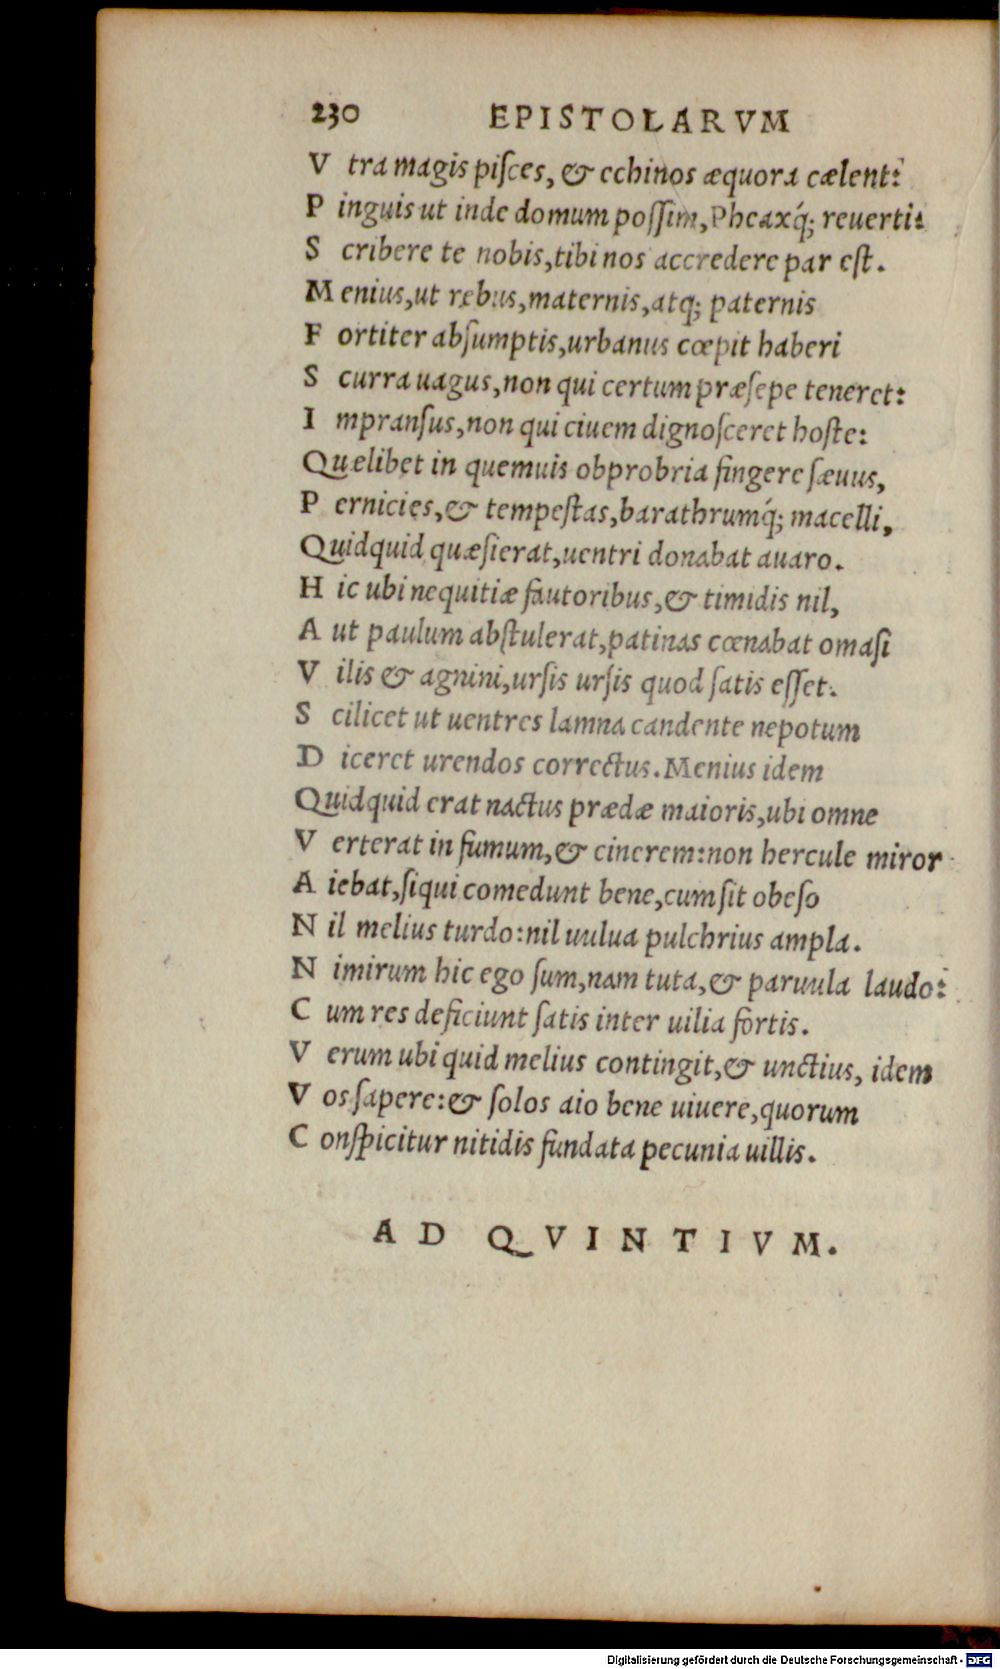 230 EPISTOLARVM
V tra magis piſces, & echinos æquora cælent:
P inguis ut inde domum poſſim, Pheaxq́; reuerti:
S cribere te nobis, tibi nos accredere par eſt.
M enius, ut rebus, maternis, atq; paternis
F ortiter abſumptis, urbanus cœpit haberi
S curra uagus, non qui certum præſepe teneret:
I mpranſus, non qui ciuem dignoſceret hoſte:
Quælibet in quemuis obprobria fingere ſæuus,
P ernicies, & tempeſtas, barathrumq́; macelli,
Quidquid quæſierat, uentri donabat auaro.
H ic ubi nequitiæ fautoribus, & timidis nil,
A ut paulum abſtulerat, patinas cœnabat omaſi
V ilis & agnini, urſis urſis quod ſatis eſſet.
S cilicet ut uentres lamna candente nepotum
D iceret urendos correctus. Menius idem
Quidquid erat nactus prædæ maioris, ubi omne
V erterat in fumum, & cinerem: non hercule miror
A iebat, ſiqui comedunt bene, cum ſit obeſo
N il melius turdo: nil uulua pulchrius ampla.
N imirum hic ego ſum, nam tuta, & paruula laudo:
C um res deficiunt ſatis inter uilia fortis.
V erum ubi quid melius contingit, & unctius, idem
V os ſapere: & ſolos aio bene uiuere, quorum
C onſpicitur nitidis fundata pecunia uillis.
AD QVINTIVM.
Digitalisierung gefördert durch die Deutsche Forschungsgemeinschaft - DFG